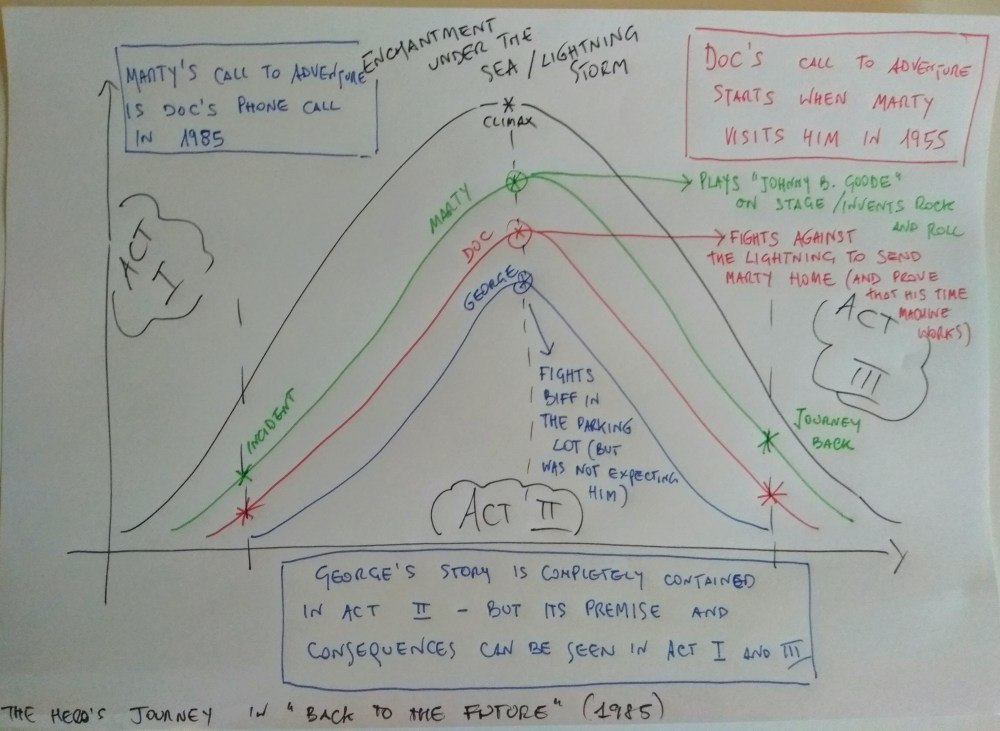 MARTY'S CALL TO ADVENTURE
IS DOC'S PHONE CALL
IN 1985
ENCHANTMENT
UNDER THE
SEA / LIGHTNING
STORM
DOC'S CALL TO ADVENTURE
STARTS WHEN MARTY
VISITS HIM IN 1955
CLIMAX
MARTY
PLAYS "JOHNNY B. GOODE"
ON STAGE / INVENTS ROCK
AND ROLL
DOC
FIGHTS AGAINST
THE LIGHTNING TO SEND
MARTY HOME (AND PROVE
THAT HIS TIME
MACHINE
WORKS)
GEORGE
FIGHTS
BIFF IN
THE PARKING
LOT (BUT
WAS NOT EXPECTING
HIM)
ACT
I
INCIDENT
ACT II
ACT
III
JOURNEY
BACK
GEORGE'S STORY IS COMPLETELY CONTAINED
IN ACT II - BUT ITS PREMISE AND
CONSEQUENCES CAN BE SEEN IN ACT I AND III
THE HERO'S JOURNEY IN "BACK TO THE FUTURE" (1985)